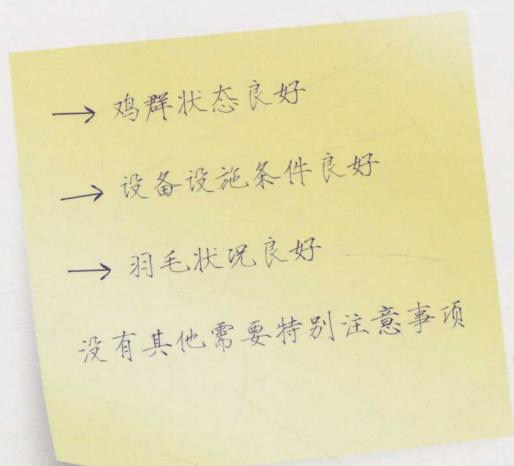 → 鸡群状态良好
→ 设备设施条件良好
→ 羽毛状况良好
没有其他需要特别注意事项